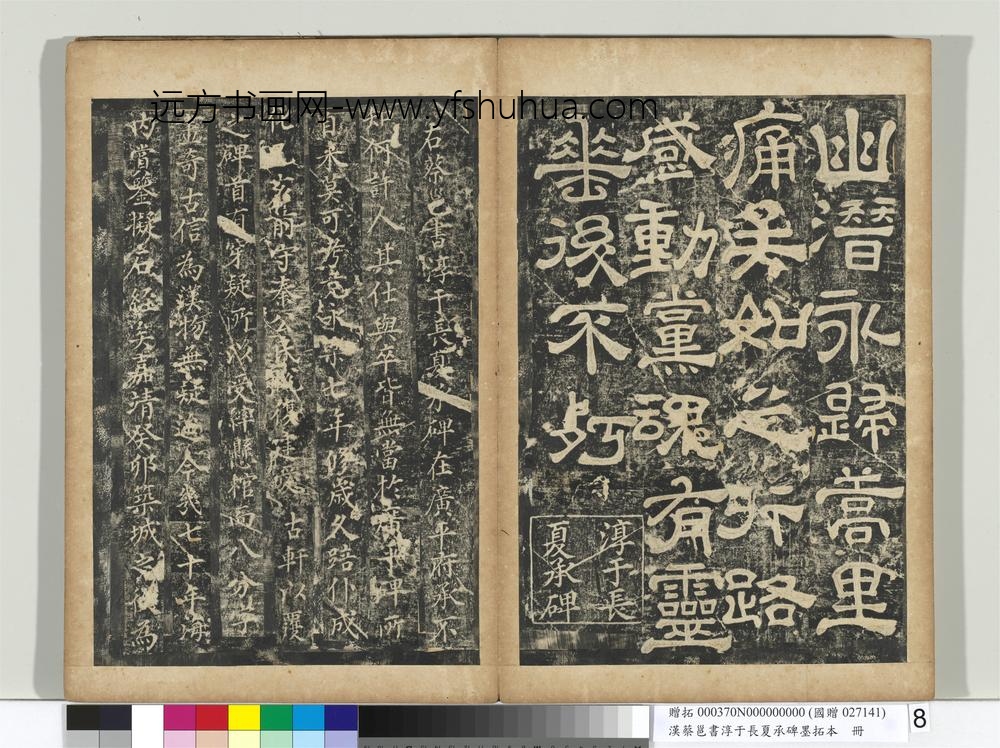 幽潛永歸蒿里
痛矣如之行路
感動黨魂有靈
垂後不朽
淳于長
夏承碑
右蔡邕書淳于長夏承碑在廣平府承不
何許人其仕與卒皆無當於廣平碑所
自來莫可考究永樂七年修歲久踣仆成
化 前守秦公民悅復建愛古軒以覆
之碑首有穿疑所以受繂懸棺而八分字
畫奇古信為漢物無疑迄今幾七十年海
內賞鑒擬石經矣嘉靖癸卯築城之後為
远方书画网-www.yfshuhua.com
贈拓 000370N000000000 (國贈 027141)
漢蔡邕書淳于長夏承碑墨拓本 冊
8